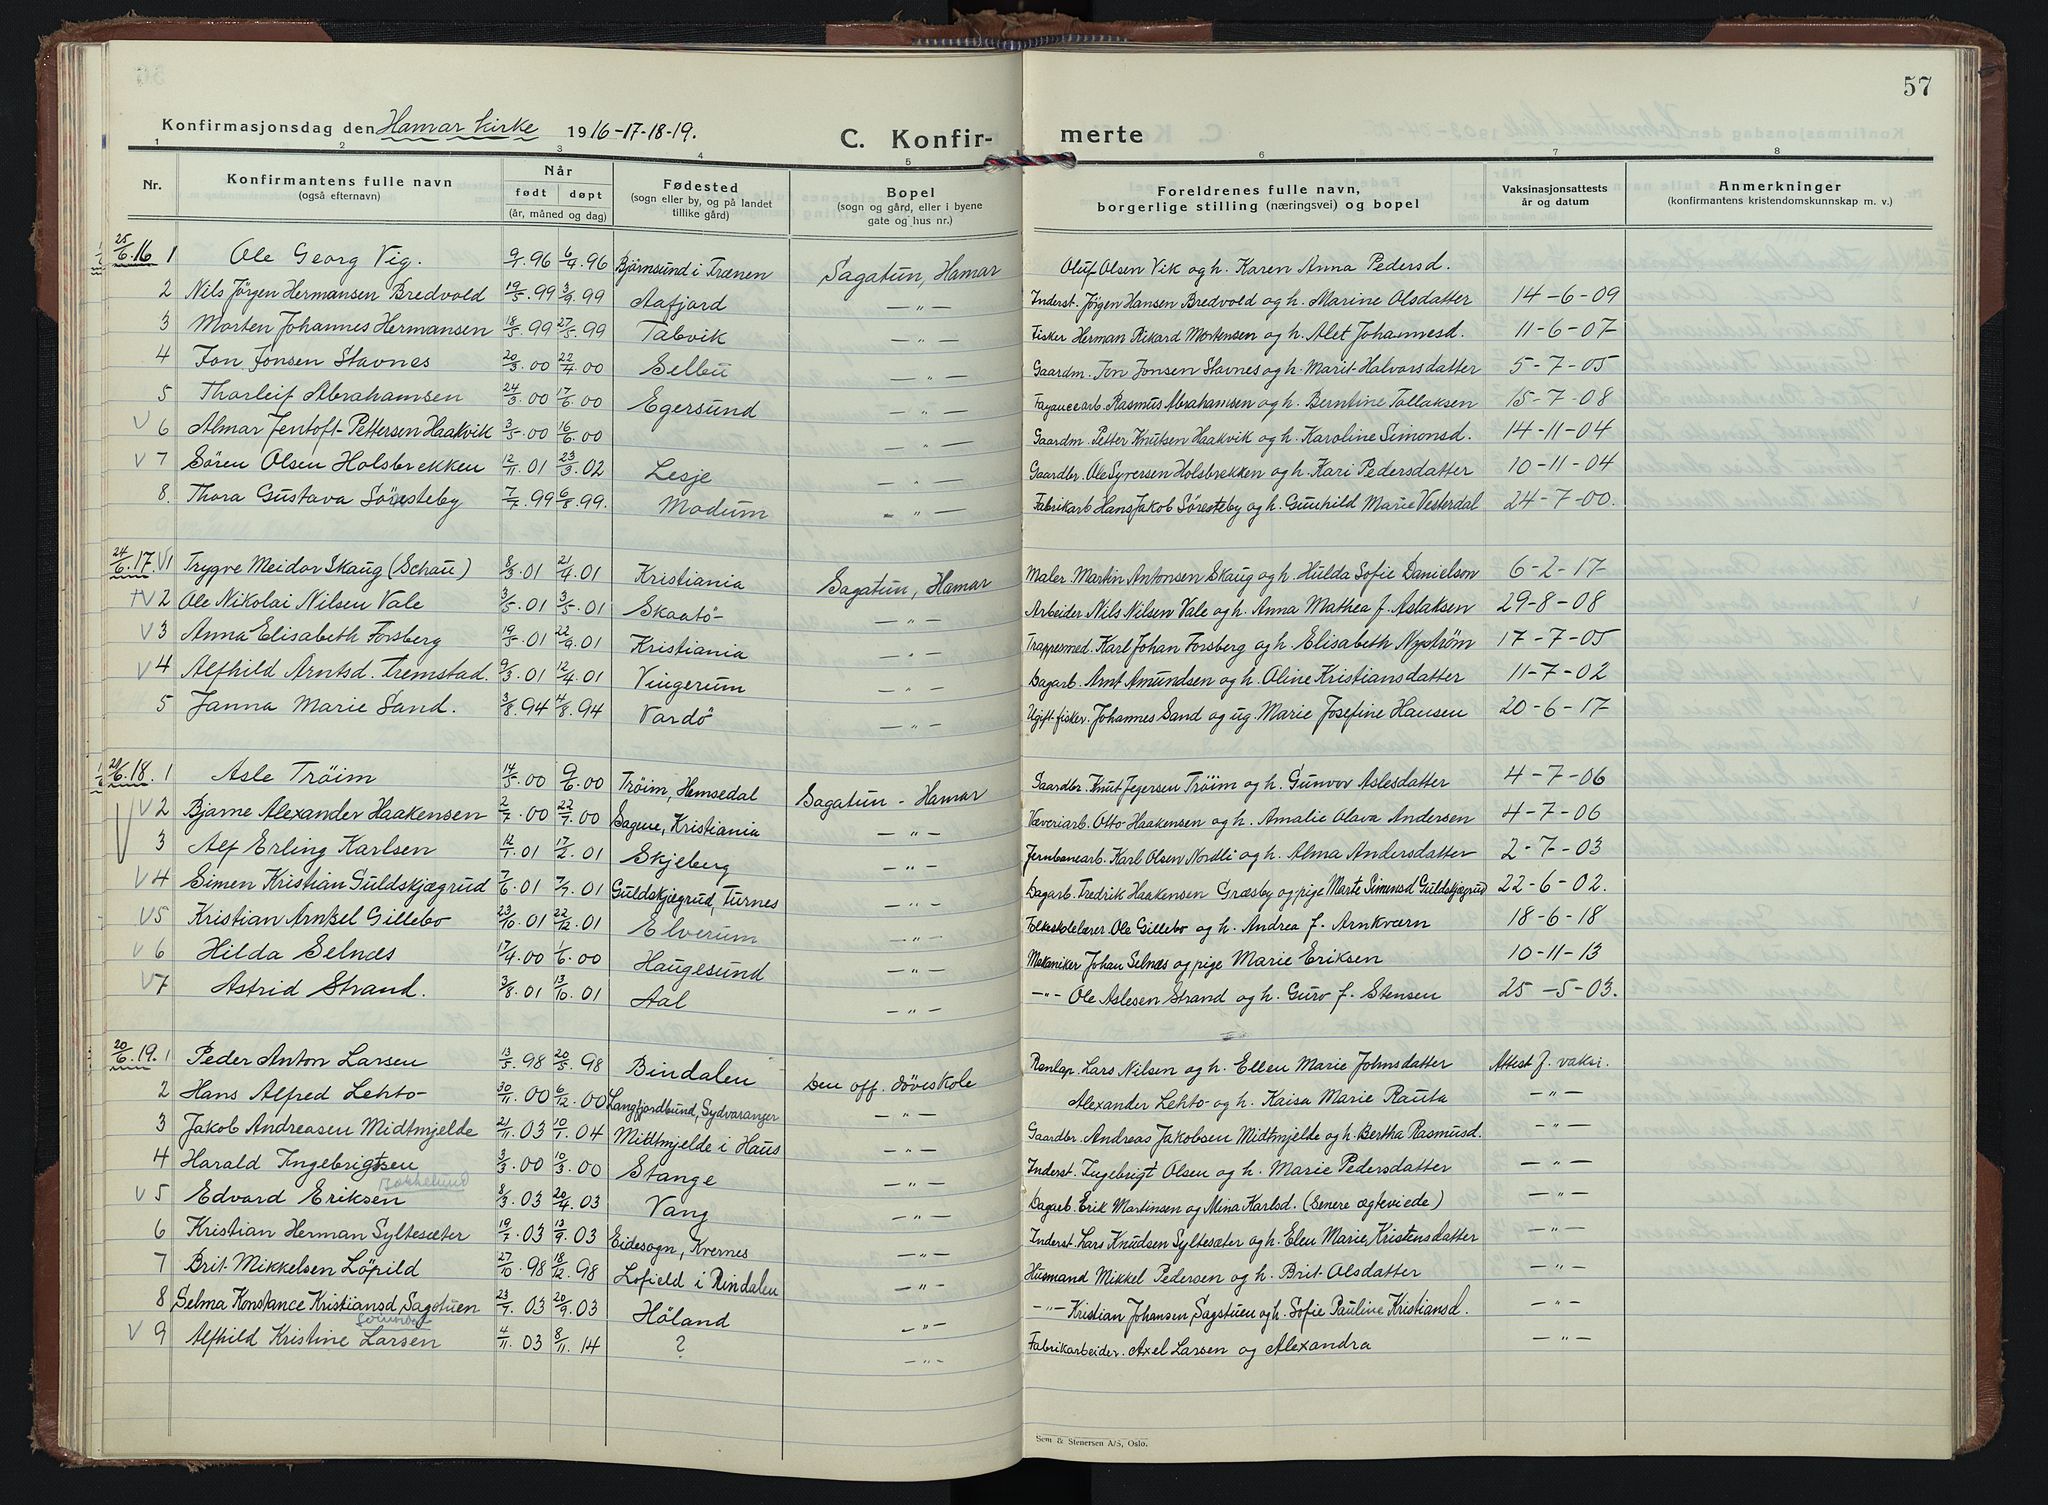 57
Konfirmasjonsdag den Hamar kirke 1916-17-18-19.
C. Konfir- merte
1 2 3 4 5 6 7 8
Nr. Konfirmantens fulle navn (også efternavn) Når født døpt (år, måned og dag) Fødested (sogn eller by, og på landet tillike gård) Bopel (sogn og gård, eller i byene gate og hus nr.) Foreldrenes fulle navn, borgerlige stilling (næringsvei) og bopel Vaksinasjonsattests år og datum Anmerkninger (konfirmantens kristendomskunnskap m. v.)
25/6.16 1 Ole Georg Vig. 9/1.96 6/4.96 Björnsund i Trænen Sagatun, Hamar Oluf Olsen Vik og h. Karen Anna Pedersd.
2 Nils Jörgen Hermansen Bredvold 19/5.99 3/9.99 Aafjord — " — Inderst. Jörgen Hansen Bredvold og h. Marine Olsdatter 14-6-09
3 Morten Johannes Hermansen 18/5.99 27/5.99 Talvik — " — Fisker Herman Rikard Mortensen og h. Alet Johannesd. 11-6-07
4 Jon Jonsen Stavnes 20/3.00 22/4.00 Selbu — " — Gaardm. Jon Jonsen Stavnes og h. Marit Halvorsdatter 5-7-05
5 Thorleif Abrahamsen 24/3.00 17/6.00 Egersund — " — Fayancearb. Rasmus Abrahamsen og h. Berntine Tollaksen 15-7-08
V 6 Almar Jentoft-Pettersen Haakvik 3/5.00 16/6.00 — " — Gaardm. Petter Knutsen Haakvik og h. Karoline Simonsd. 14-11-04
V 7 Sören Olsen Holsbrekken 12/11.01 23/3.02 Lesje — " — Gaardbr. Ole Syversen Holsbrekken og h. Kari Pedersdatter 10-11-04
8. Thora Gustava Söresteby 7/7.99 6/8.99. Modum — " — Fabrikarb Hans Jakob Söresteby og h. Gunhild Marie Vesterdal 24-7-00.
24/6.17. V1 Trygve Meidor Skaug (Schau) 8/3.01 21/4.01 Kristiania Sagatun, Hamar Maler Martin Antonsen Skaug og h. Hulda Sofie Danielson 6-2-17
V 2 Ole Nikolai Nilsen Vale 3/5.01 3/5.01 Skaatö — " — Arbeider Nils Nilsen Vale og h. Anna Mathea f. Aslaksen 29-8-08
V 3 Anna Elisabeth Forsberg 19/5.01 22/9.01 Kristiania — " — Trappesmed. Karl Johan Forsberg og h. Elisabeth Nyström 17-7-05
V 4 Alfhild Arntsd. Tremstad. 9/3.01 12/4.01 Vingerum — " — Dagarb. Arnt Amundsen og h. Oline Kristiansdatter 11-7-02
5 Janna Marie Sand. 3/8.94 4/8.94 Vardö — " — Ugift fisker. Johannes Sand og ug. Marie Josefine Hansen 20-6-17
/6.18. 1 Asle Tröim 14/5.00 9/6.00 Tröim, Hemsedal Sagatun - Hamar Gaardbr. Knut Jegersen Tröim og h. Gunvor Aslesdatter 4-7-06
V 2 Bjarne Alexander Haakensen 2/7.00 22/7.00 Sagene, Kristiania — " — Væveriarb. Otto Haakensen og h. Amalie Olava Andersen 4-7-06
3 Alf Erling Karlsen 12/1.01 17/2.01 Skjeberg — " — Jernbanearb. Karl Olsen Nordli og h. Alma Andersdatter 2-7-03
V 4 Simen Kristian Guldskjægrud 7/6.01 7/7.01 Guldskjægrud, Turnes — " — Dagarb. Fredrik Haakensen Græsby og pige Marte Simensd Guldskjægrud 22-6-02.
V5 Kristian Arnkel Gillebo 23/10.01 22/12.01 Elverum — " — Folkeskolelærer. Ole Gillebo og h. Andrea f. Arnkværn 18-6-18
V 6 Hilda Selnæs 17/4.00 1/6.00 Haugesund — " — Mekaniker Johan Selnæs og pige Marie Eriksen 10-11-13
V7 Astrid Strand. 3/8.01 13/10.01 Aal — " — — " — Ole Aslesen Strand og h. Guro f. Stensen 25-5-03.
20/6.19. 1 Peder Anton Larsen 13/5.98 20/5.98 Bindalen Den off. döveskole Renlap. Lars Nilsen og h. Ellen Marie Johnsdatter Attest f. vaksi.
2 Hans Alfred Lehto 30/11.00 6/12.00 Langfjordbund, Sydvaranger — " — Alexander Lehto og h. Kaisa Marie Rauta — " —
3 Jakob Andreasen Midtmjelde 21/11.03 10/1.04 Midtmjelde i Haus — " — Gaardbr. Andreas Jakobsen Midtmjelde og h. Bertha Rasmusd. — " —
4 Harald Ingebrigtsen 3/3.00 10/3.00 Stange — " — Inderst. Ingebrigt Olsen og h. Marie Pedersdatter — " —
Bakkelund
V 5 Edvard Eriksen 8/3.03 20/4.03 Vang — " — Dagarb. Erik Martinsen og Mina Karlsd. (Senere ægteviede) — " —
6 Kristian Herman Syltesæter 19/7.03 13/9.03 Eidesogn, Kvernes — " — Inderst. Lars Knudsen Syltesæter og h. Elen Marie Kristensdatter — " —
7 Brit Mikkelsen Löpild 27/10.98 18/12.98 Lofield i Rindalen — " — Husmand Mikkel Pedersen og h. Brit Olsdatter — " —
8 Selma Konstance Kristiansd. Sagstuen 23/7.03 20/9.03 Höland — " — — " — Kristian Johansen Sagstuen og h. Sofie Pauline Kristiansd. — " —
V 9 Alfhild Kristine Larsen 4/11.03 8/11.14 ? — " — Fabrikarbeider. Axel Larsen og Alexandra — " —
Sem & Stenersen A/S, Oslo.